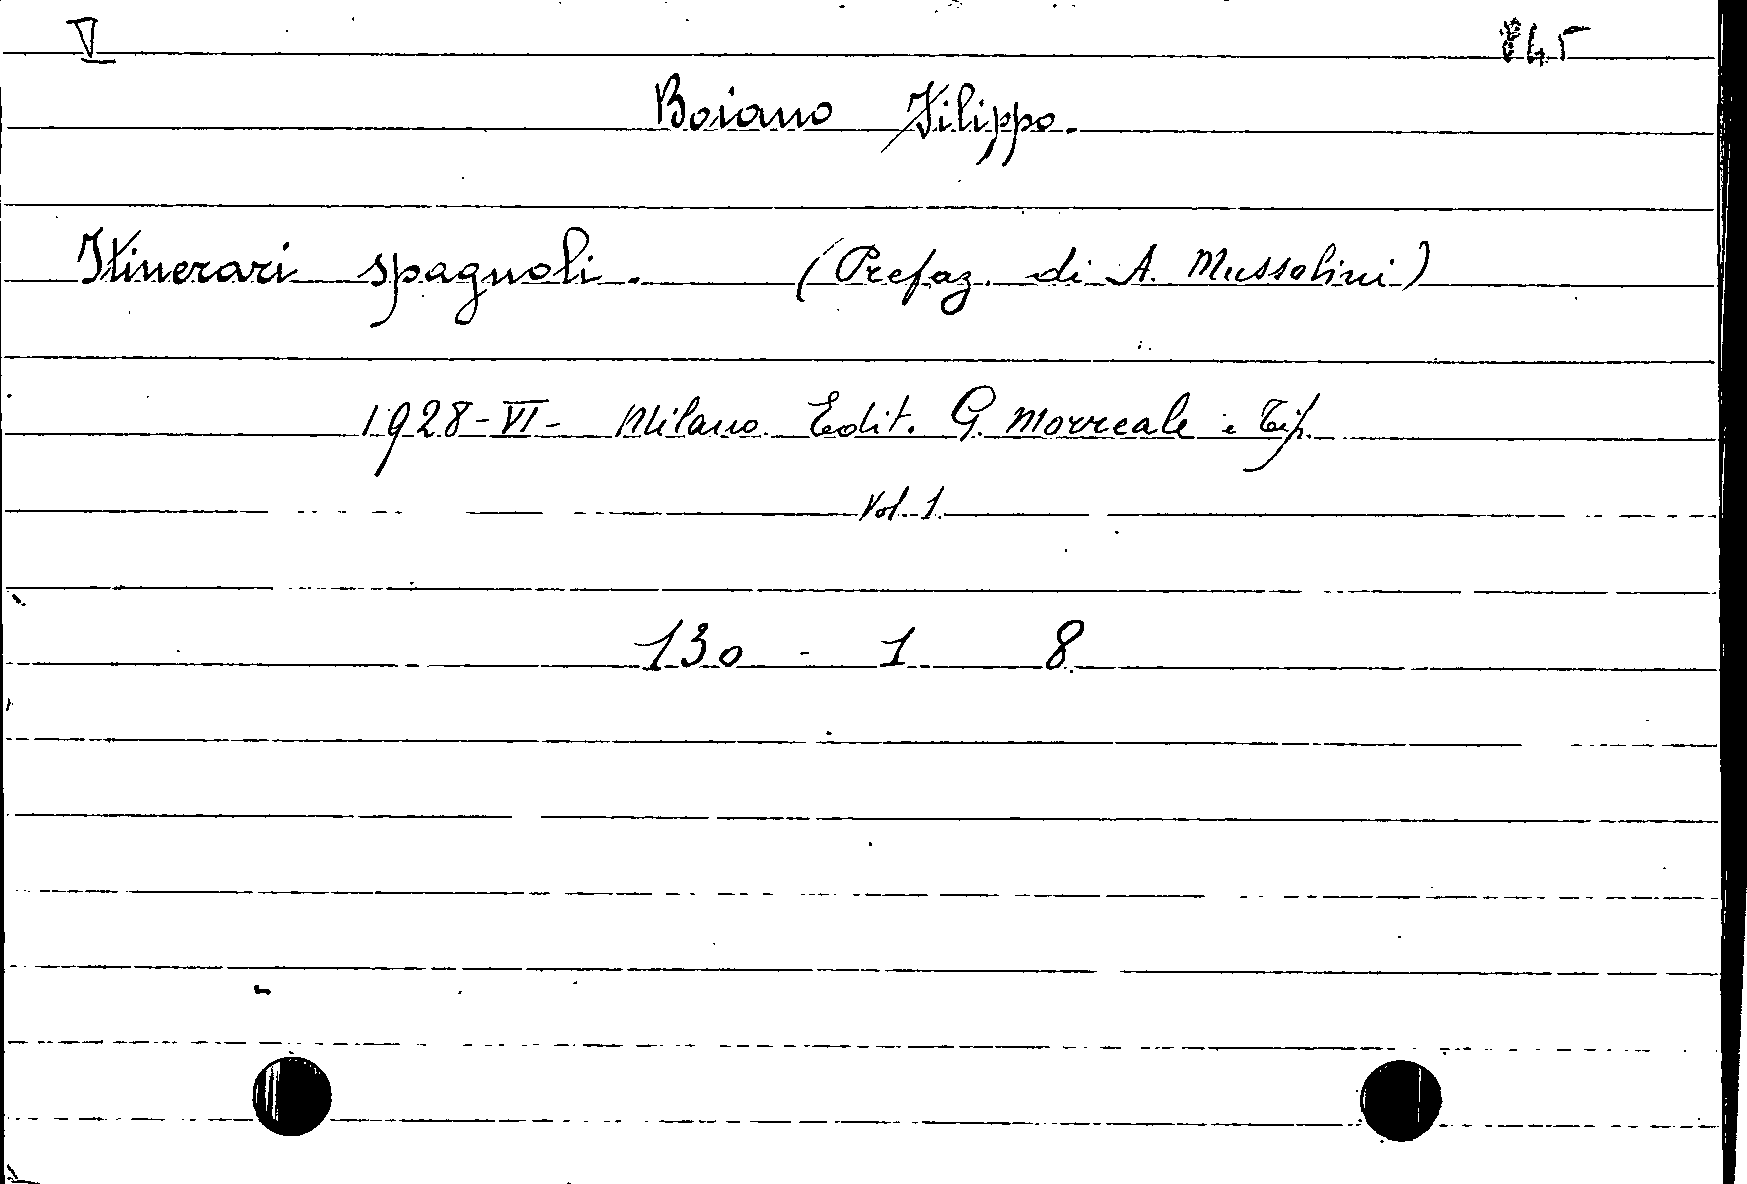 V 845
Boiano Filippo.
Itinerari spagnoli. (Prefaz. di A. Mussolini)
1928-VI- Milano Edit. G. Morreale e Tip.
Vol. 1
130 - 1 8